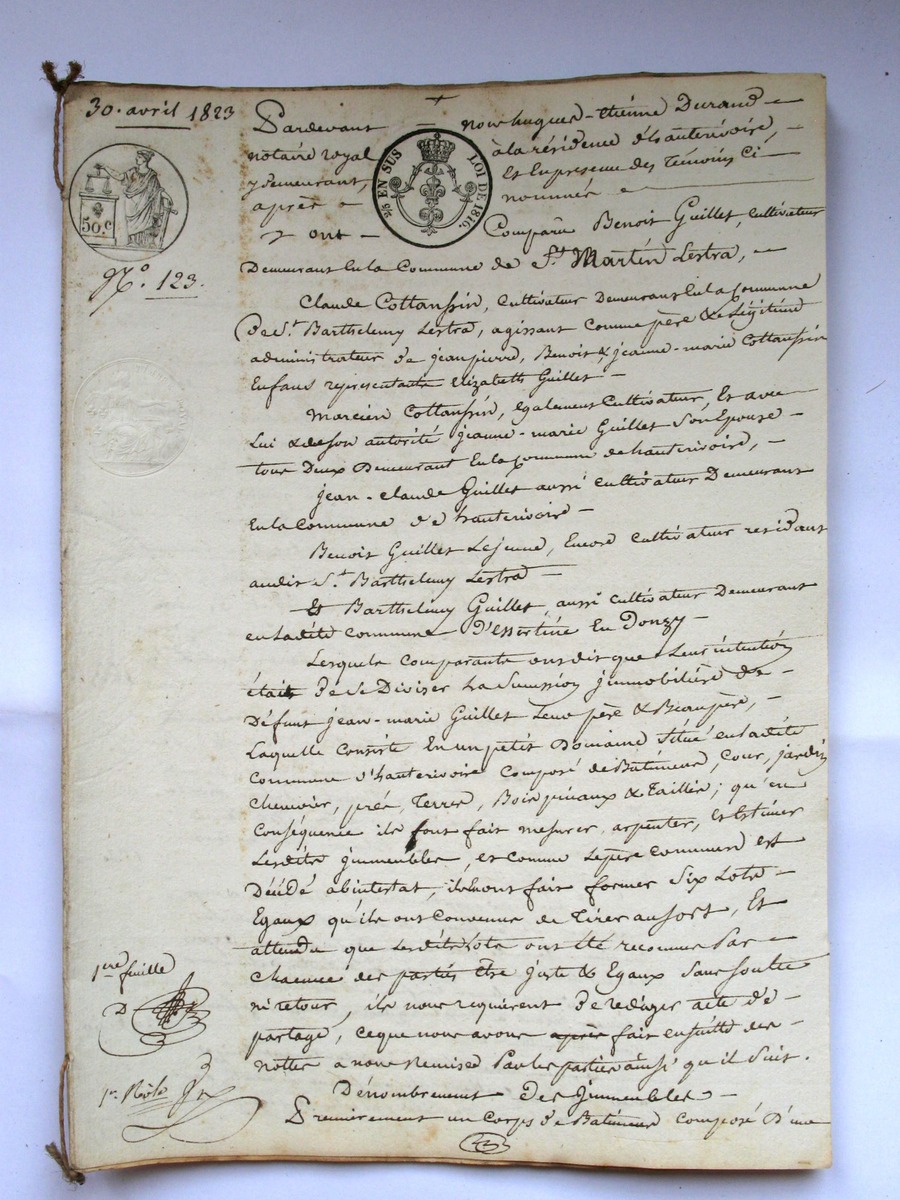 30. avril 1823
Pardevant — nous hugues-étienne Durand —
notaire royal à la résidence d'hauterivoire, —
y demeurant, Et En presence des témoins ci
après — nommés —
25 EN SUS LOI DE 1816.
50.c
N.º 123.
y ont — Comparu Benoit Guillet, cultivateur
Demeurant En la Commune de S.t Martin Lestra, —
Claude Cottanssin, Cultivateur Demeurant En la Commune
De S.t Barthelemy Lestra, agissant Comme père & Légitime
administrateur de jean pierre, Benoit & jeanne-marie Cottanssin
Enfans representants Elizabeth Guillet —
Marcien Cottanssin, également Cultivateur, Et avec
Lui & de son autorité jeanne-marie Guillet Son Epouse —
tous Deux Demeurant En la Commune de hauterivoire, —
jean-claude Guillet aussi cultivateur Demeurant
En la Commune de hauterivoire —
Benoit Guillet Lejeune, Encore cultivateur residant
audit S.t Barthelemy Lestra —
Et Barthelemy Guillet, aussi cultivateur Demeurant
en ladite commune D'essertine En Donzy —
Lesquels comparants ont dit que Leur intention
était De Se Diviser La Succession jmmobilière de —
Défunt jean-marie Guillet Leur père & Beaupère, —
Laquelle Consiste En un petit Domaine Situé en ladite
Commune d'hauterivoire Composé de Bâtiments, Cour, jardin
Chenevier, prés, Terres, Bois pinaux & Taillis; qu'en
Conséquence ils font fait mesurer, arpenter, et Estimer
Lesdits jmmeubles, et comme Le père commun est
Décédé abintestat, ils ont fait former Six Lots —
Egaux qu'ils ont Convenus de Tirer au sort, Et
attendu que Lesdits Lots ont été reconnus Par —
Chacune des parties Être juste & Egaux Sans Soulte
ni retour, ils nous requièrent De rediger acte de —
partage, ce que nous avons après fait en suite des —
nottes a nous Remises Par les parties ainsi qu'il Suit.
Dénombrement des Jmmeubles —
Premierement un Corps de Batiments composé D'une
1ere feuille
D
1er Rôle